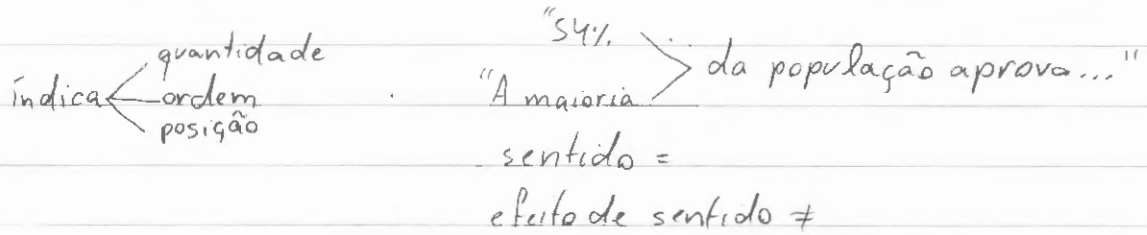 indica
quantidade
ordem
posição
"54%
"A maioria
da população aprova..."
sentido =
efeito de sentido ≠